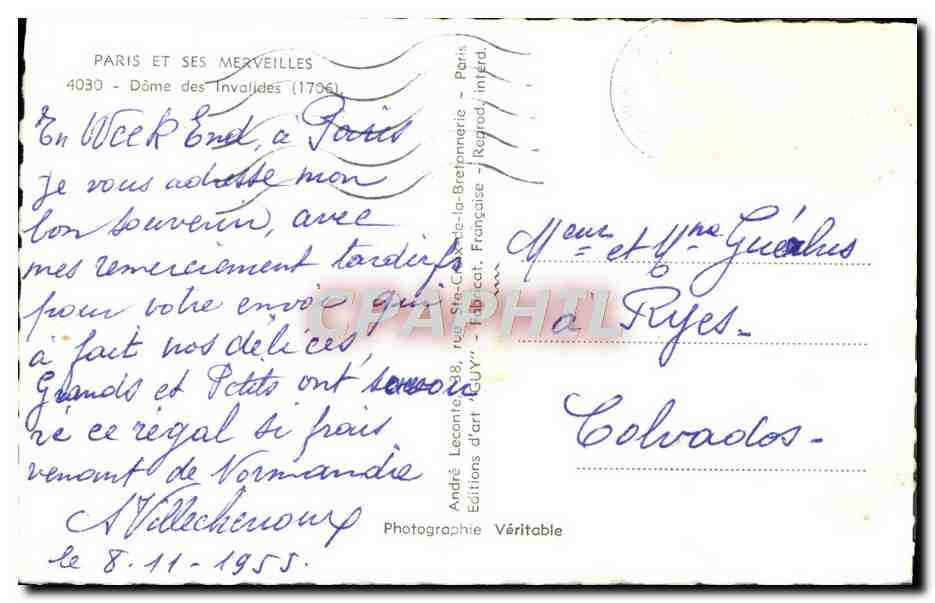 PARIS ET SES MERVEILLES
4030 - Dôme des Invalides (1706)
En Week End, a Paris
Je vous adresse mon
bon souvenir, avec
mes remerciement tardifs
pour votre envoie qui
à fait nos délices,
Grands et Petits ont savou
ré ce régal si frais
venant de Normandie
le 8.11-1955.
André Leconte, 38, rue Ste-Croix-de-la-Bretonnerie - Paris
Editions d'art "GUY" - Fabricat. Française - Reprod. interd.
Photographie Véritable
Meur et Mme
à Ryes-
Calvados-
CPAPHIL